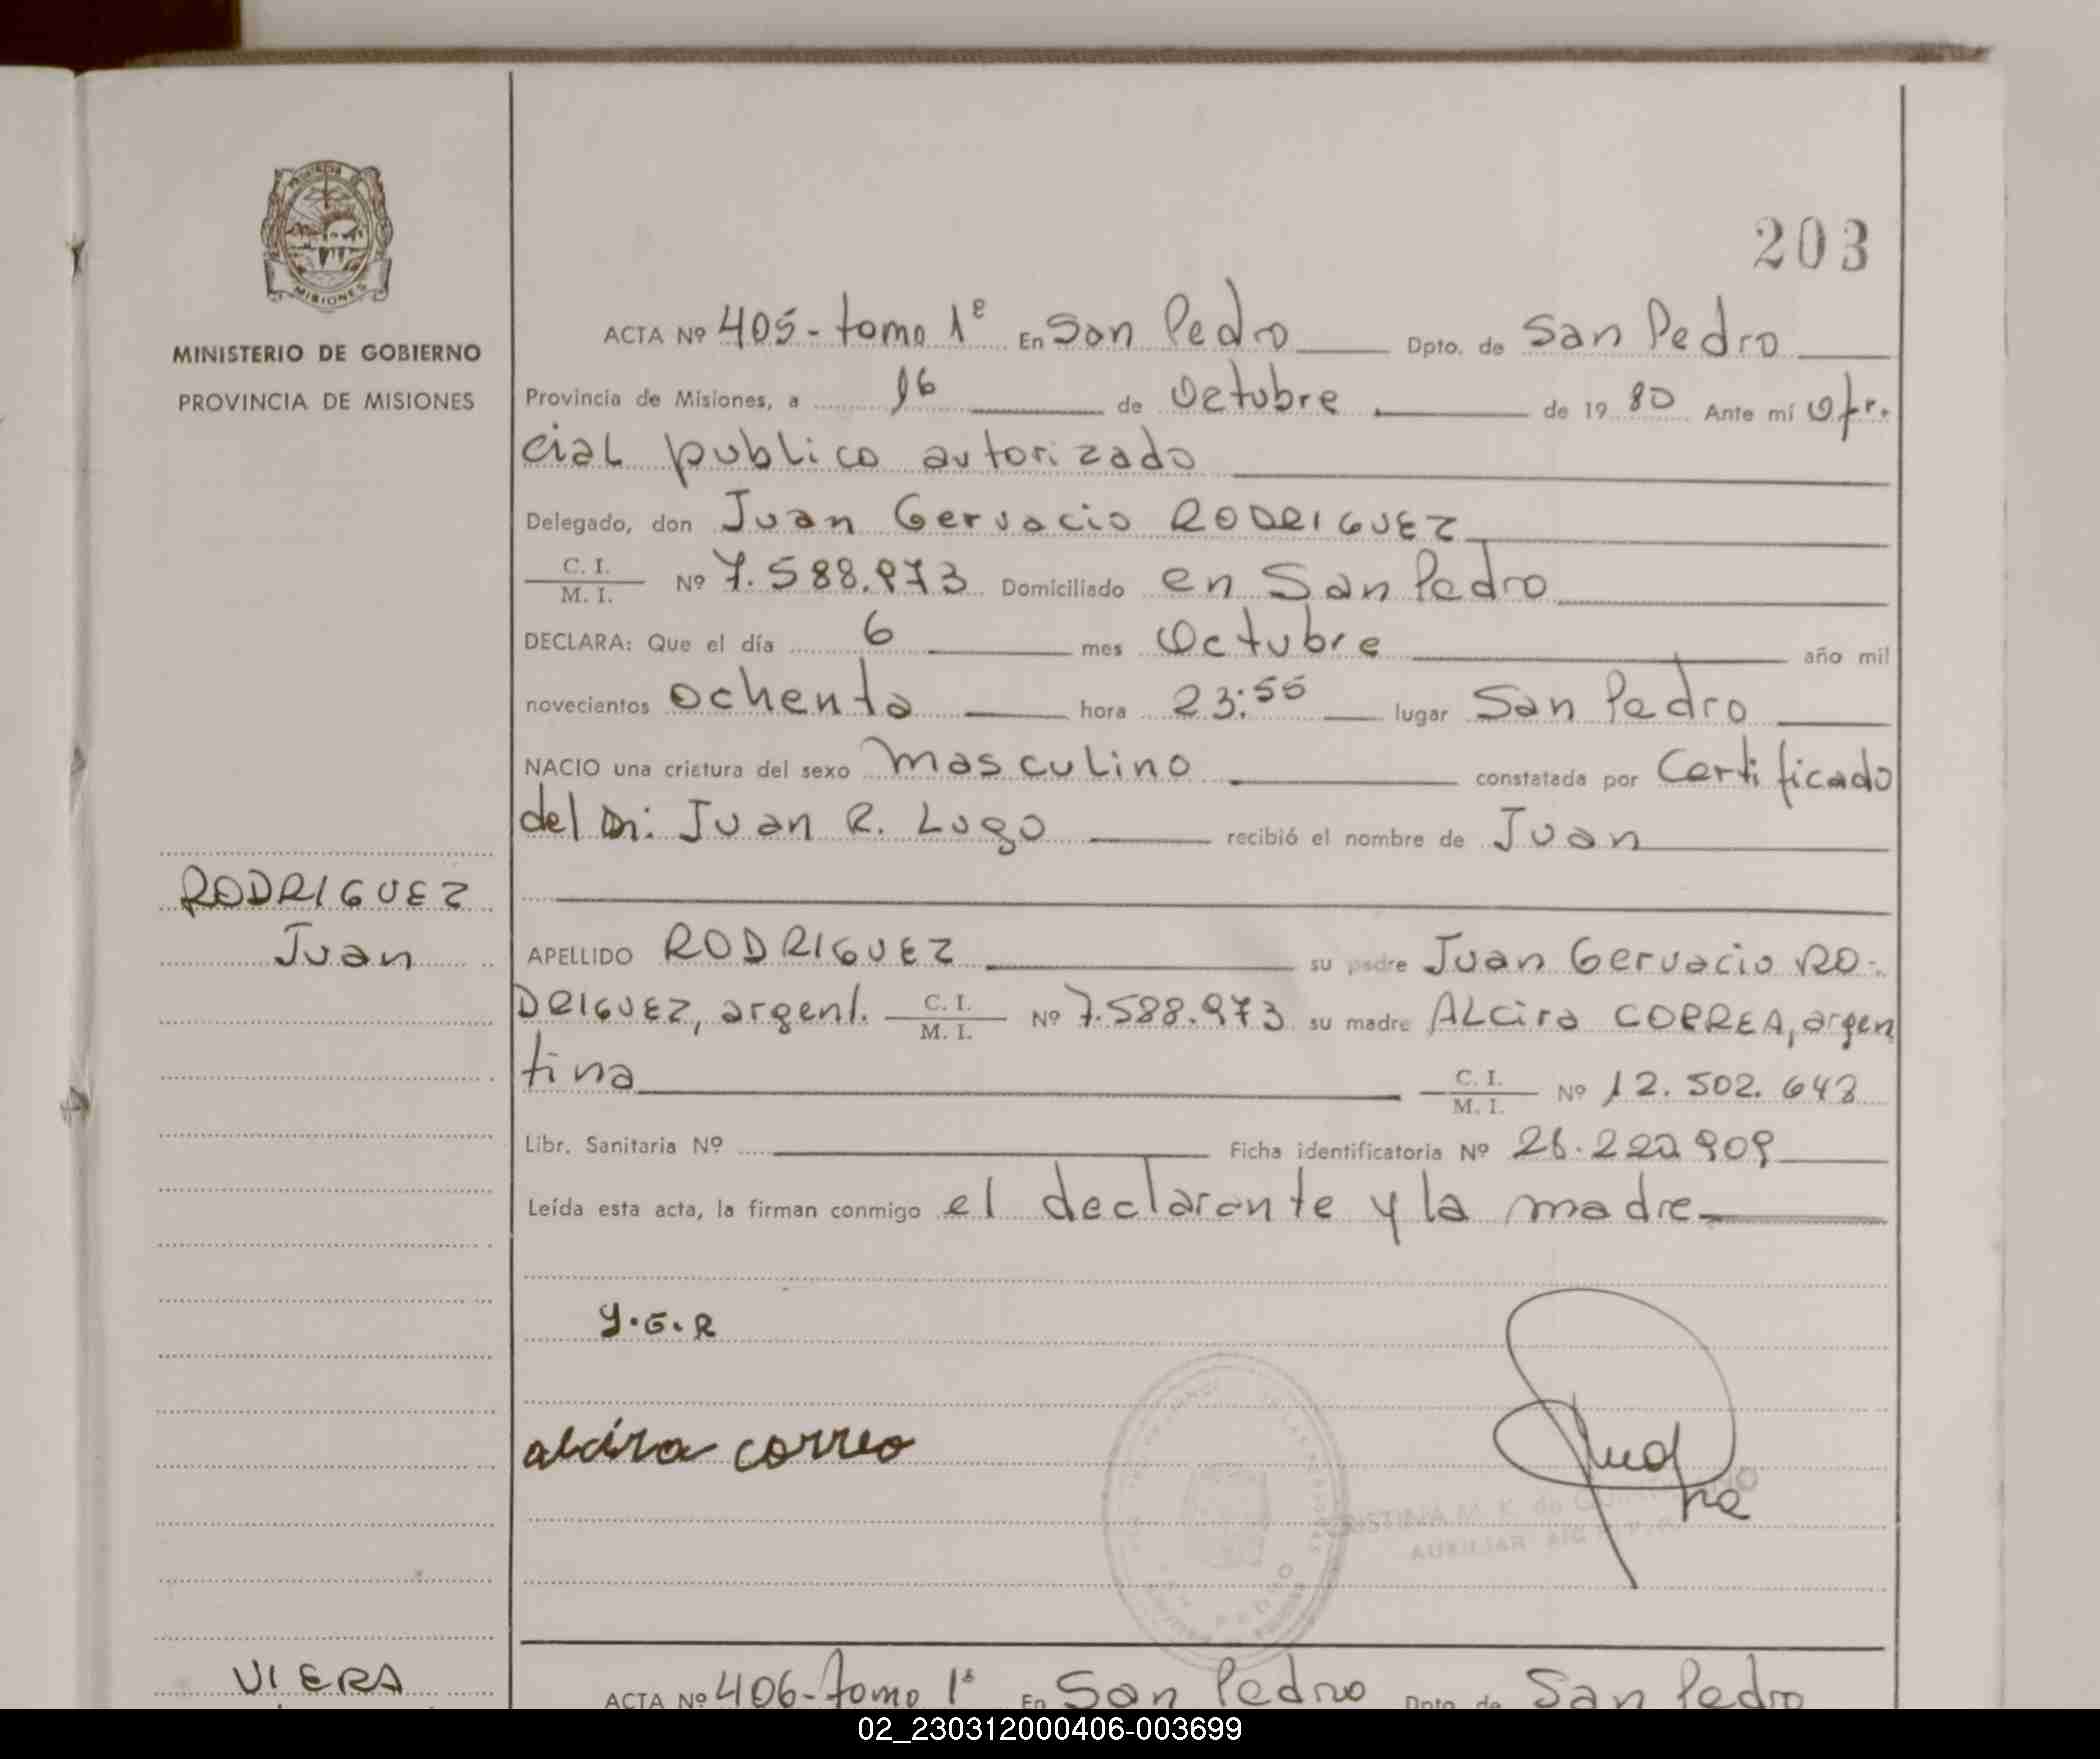 203
MINISTERIO DE GOBIERNO
PROVINCIA DE MISIONES
MISIONES
ACTA Nº 405-tomo 1º En San Pedro Dpto. de San Pedro
Provincia de Misiones, a 16 de Octubre de 1980 Ante mí Ofi-
cial publico autorizado
Delegado, don Juan Gervacio RODRIGUEZ
C. I.
M. I. Nº 7.588.973 Domiciliado en San Pedro
DECLARA: Que el día 6 mes Octubre año mil
novecientos ochenta hora 23:55 lugar San Pedro
NACIO una criatura del sexo masculino constatada por Certificado
del Dr. Juan R. Lugo recibió el nombre de Juan
RODRIGUEZ
Juan
APELLIDO RODRIGUEZ su padre Juan Gervacio RO-
DRIGUEZ, argent. C. I.
M. I. Nº 7.588.973 su madre ALcira CORREA, argen
tina C. I.
M. I. Nº 12.502.643
Libr. Sanitaria Nº Ficha identificatoria Nº 28.222 909
Leída esta acta, la firman conmigo el declarante y la madre
J.G.R
alcira correo
AUXILIAR
VIERA
ACTA Nº 406-tomo 1º En San Pedro Dpto. de San Pedro
02_230312000406-003699